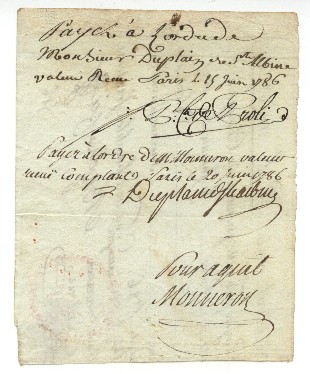 Payez à Lordre de
Monsieur Duplain de Ste Albine
valeur Reçue Paris le 15 Juin 1786
Payez à lordre de M. Monneron valeur
reçue comptant Paris le 20 Juin 1786
Pour aquit
Monneron